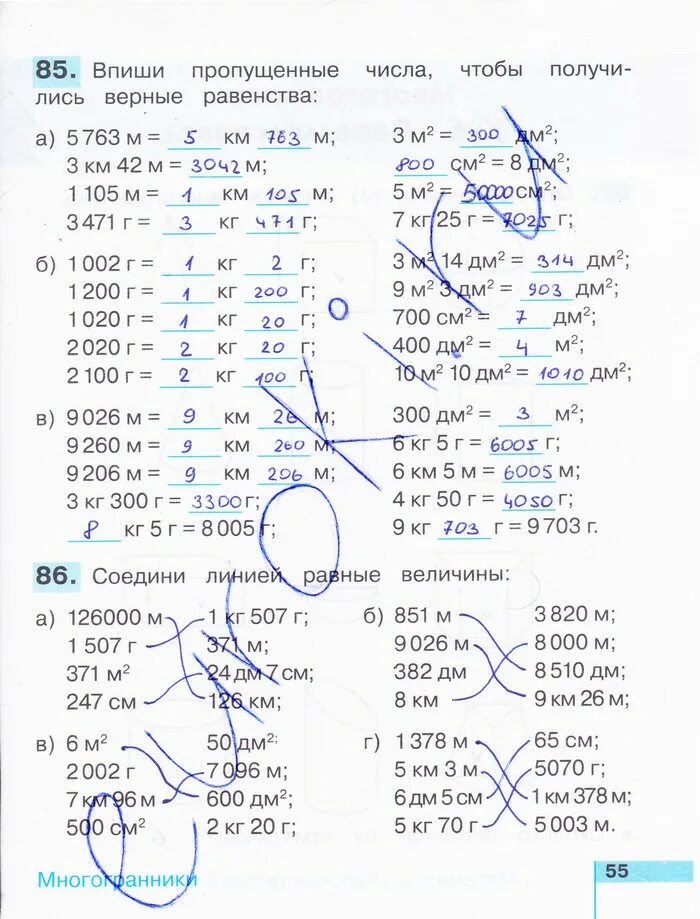 85. Впиши пропущенные числа, чтобы получи-
лись верные равенства:
а) 5 763 м = 5 км 763 м;
3 км 42 м = 3042 м;
1 105 м = 1 км 105 м;
3 471 г = 3 кг 471 г;
3 м² = 300 дм²;
800 см² = 8 дм²;
5 м² = 50000 см²;
7 кг 25 г = 7025 г;
б) 1 002 г = 1 кг 2 г;
1 200 г = 1 кг 200 г;
1 020 г = 1 кг 20 г;
2 020 г = 2 кг 20 г;
2 100 г = 2 кг 100 г;
3 м² 14 дм² = 314 дм²;
9 м² 3 дм² = 903 дм²;
700 см² = 7 дм²;
400 дм² = 4 м²;
10 м² 10 дм² = 1010 дм²;
в) 9 026 м = 9 км 26 м;
9 260 м = 9 км 260 м;
9 206 м = 9 км 206 м;
3 кг 300 г = 3300 г;
8 кг 5 г = 8 005 г;
300 дм² = 3 м²;
6 кг 5 г = 6005 г;
6 км 5 м = 6005 м;
4 кг 50 г = 4050 г;
9 кг 703 г = 9 703 г.
86. Соедини линией равные величины:
а) 126000 м 1 кг 507 г;
1 507 г 371 м;
371 м² 24 дм 7 см;
247 см 126 км;
б) 851 м 3 820 м;
9 026 м 8 000 м;
382 дм 8 510 дм;
8 км 9 км 26 м;
в) 6 м² 50 дм²;
2 002 г 7 096 м;
7 км 96 м 600 дм²;
500 см² 2 кг 20 г;
г) 1 378 м 65 см;
5 км 3 м 5070 г;
6 дм 5 см 1 км 378 м;
5 кг 70 г 5 003 м.
Многогранники
55